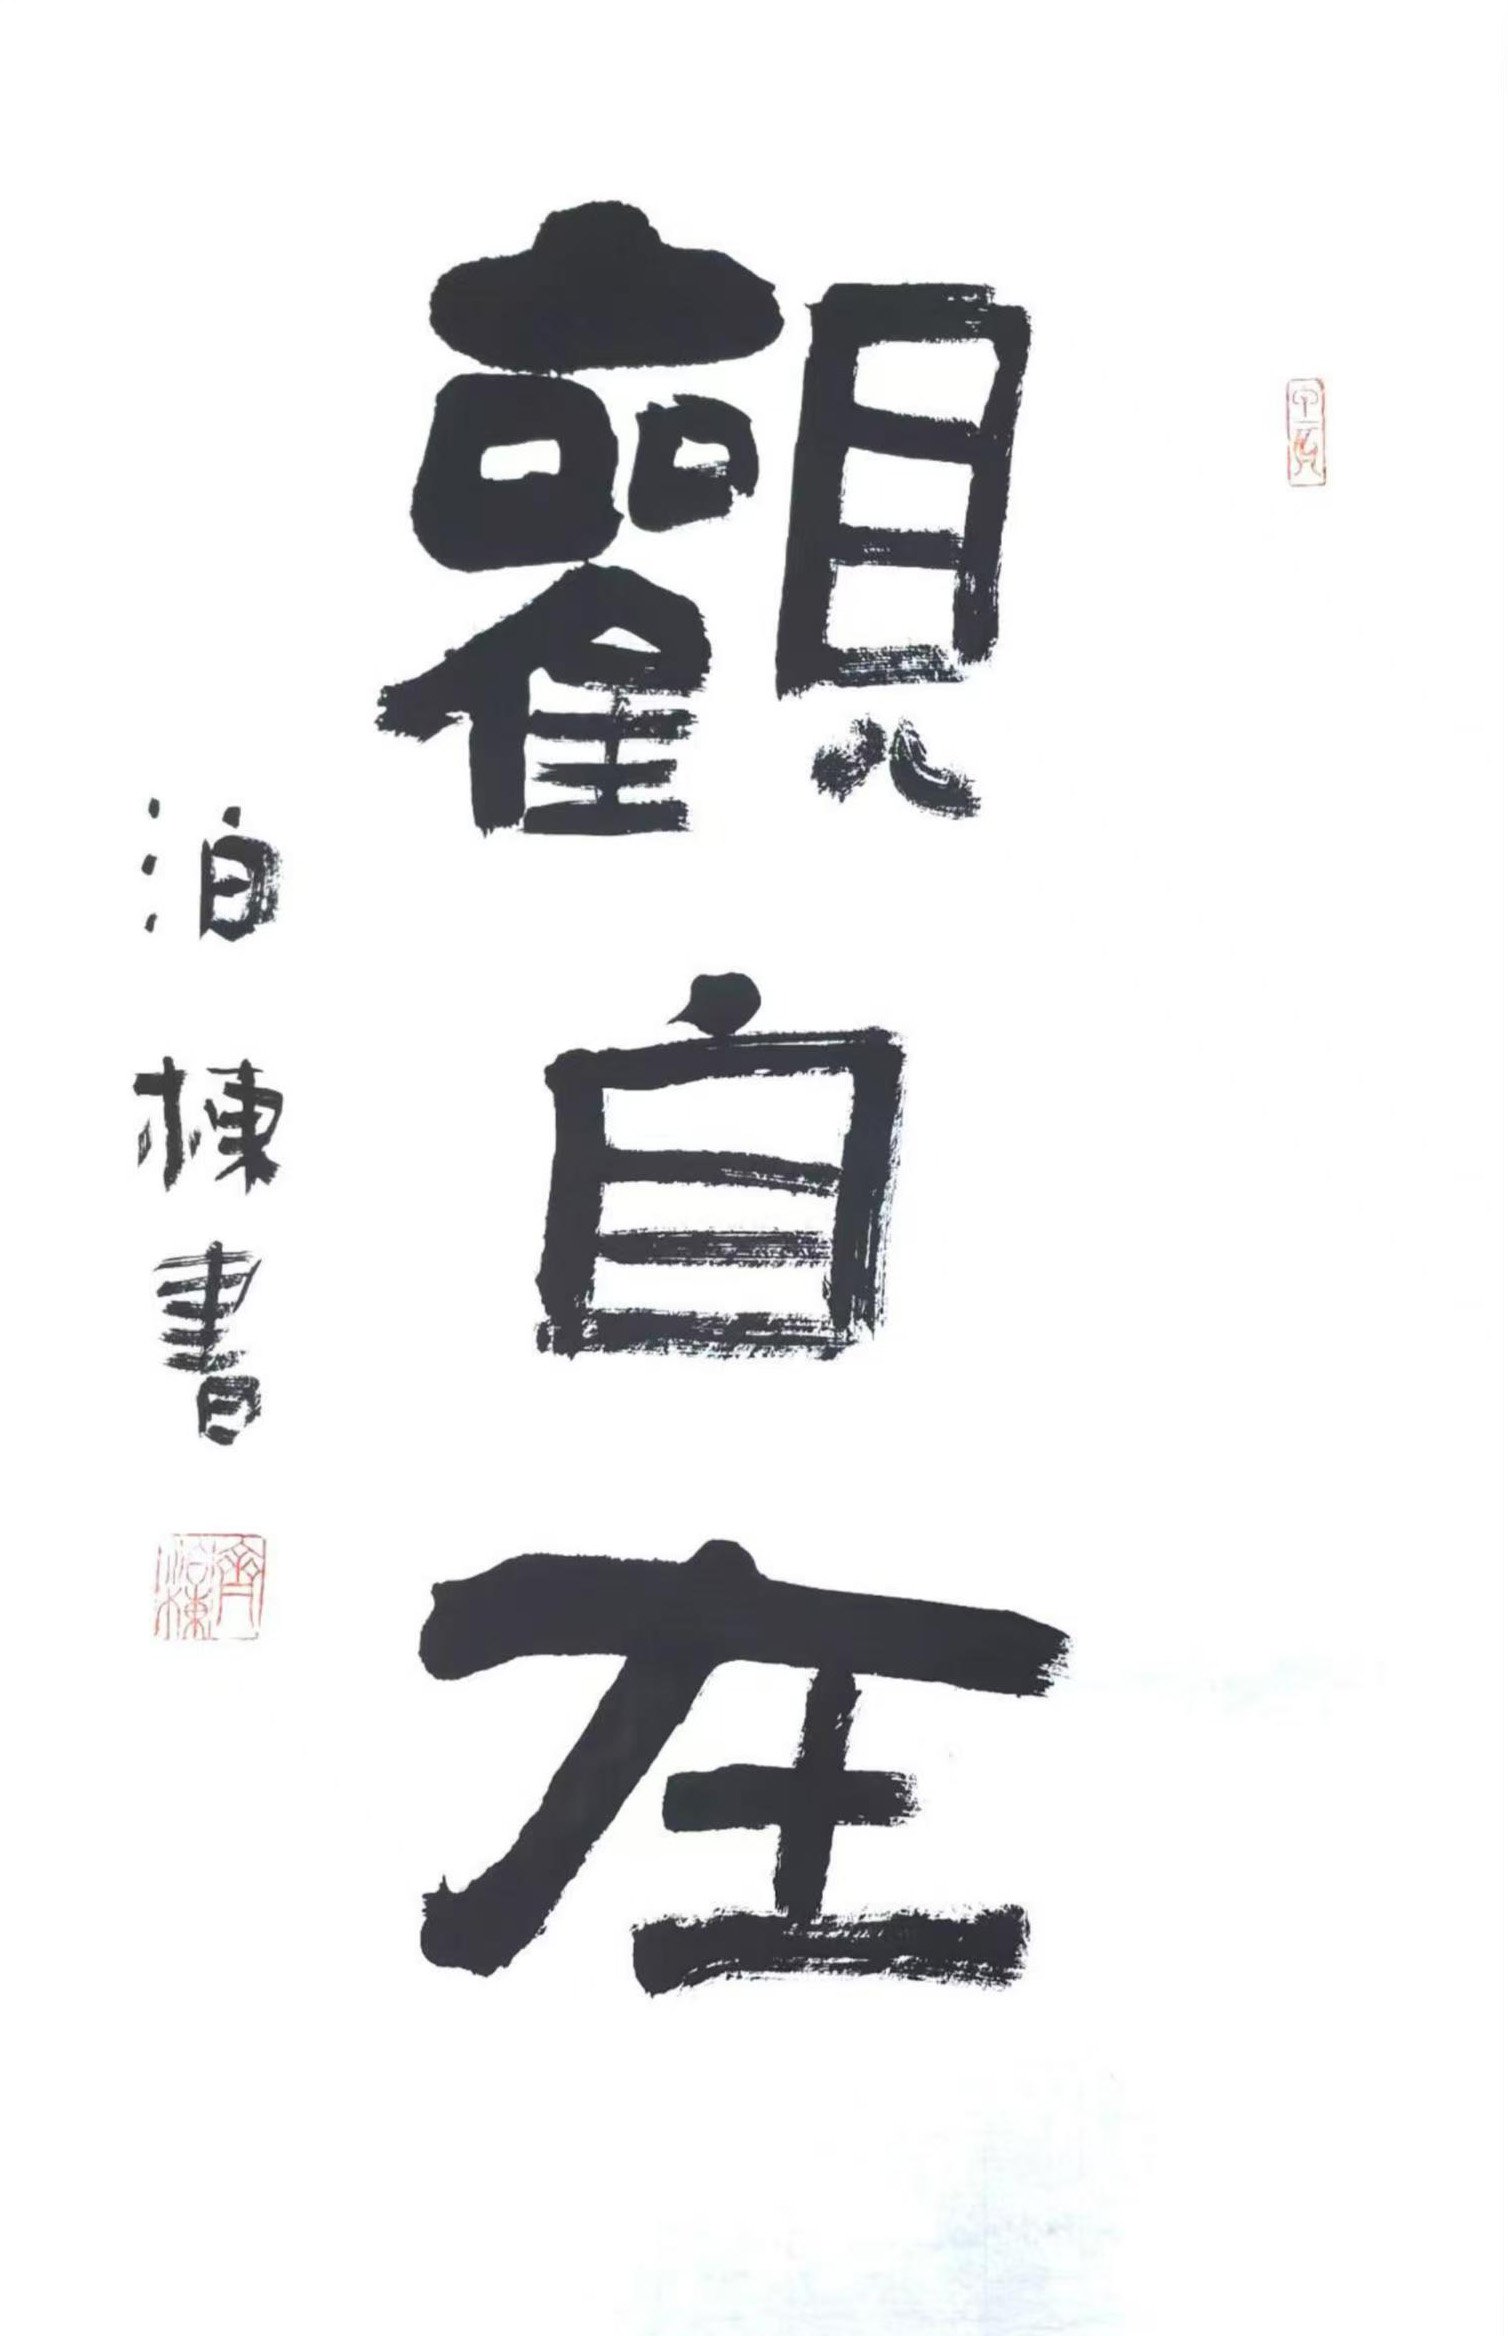 觀自在
泊棟書